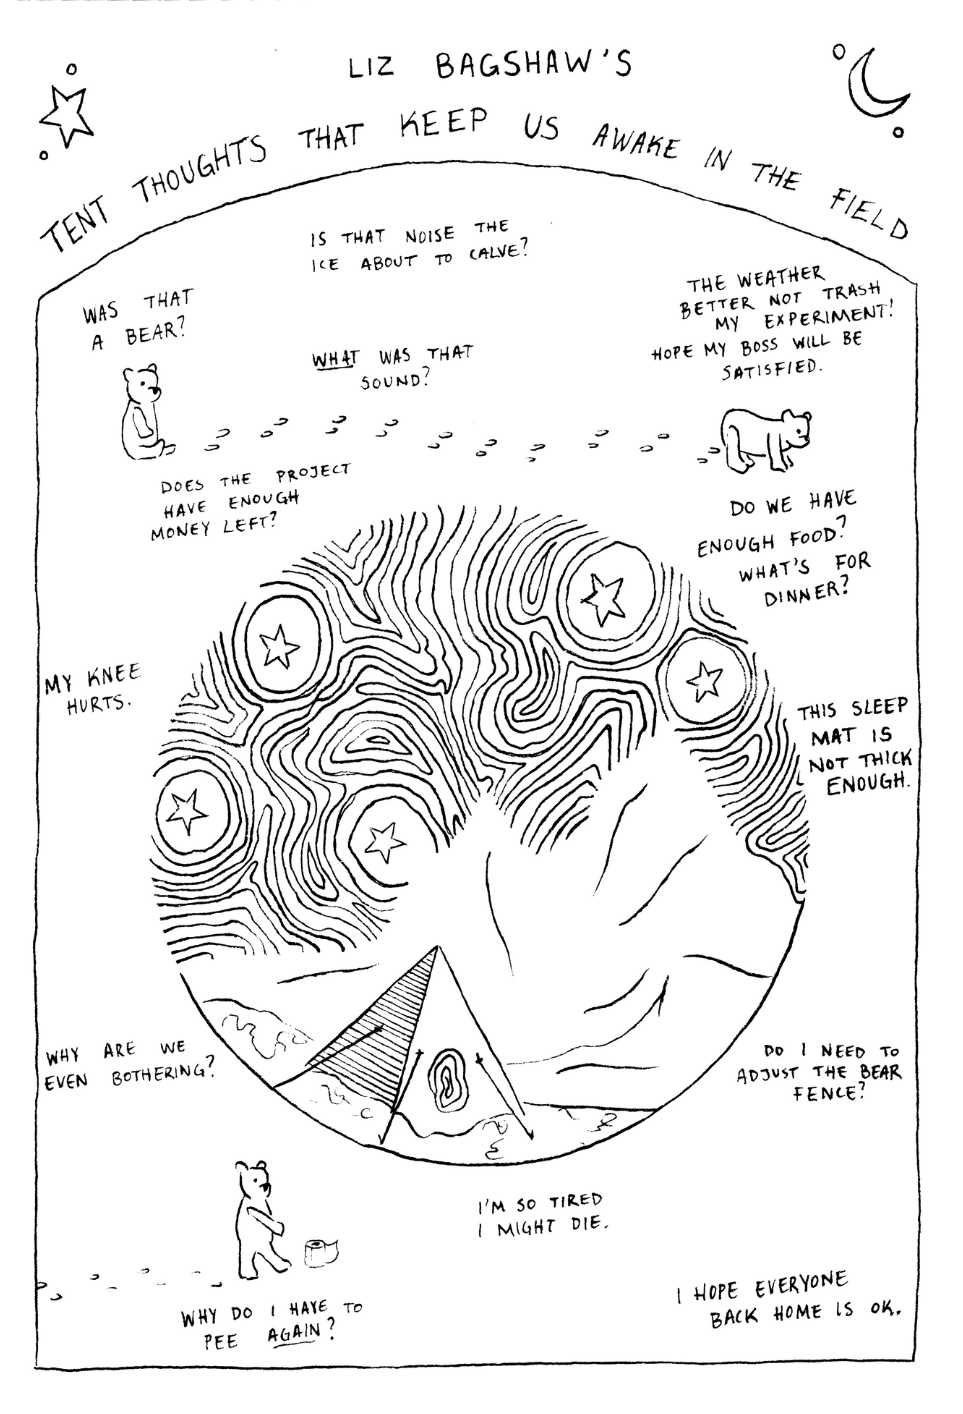 LIZ BAGSHAW'S
TENT THOUGHTS THAT KEEP US AWAKE IN THE FIELD
IS THAT NOISE THE
ICE ABOUT TO CALVE?
WAS THAT
A BEAR?
THE WEATHER
BETTER NOT TRASH
MY EXPERIMENT!
HOPE MY BOSS WILL BE
SATISFIED.
WHAT WAS THAT
SOUND?
DOES THE PROJECT
HAVE ENOUGH
MONEY LEFT?
DO WE HAVE
ENOUGH FOOD?
WHAT'S FOR
DINNER?
MY KNEE
HURTS.
THIS SLEEP
MAT IS
NOT THICK
ENOUGH.
WHY ARE WE
EVEN BOTHERING?
DO I NEED TO
ADJUST THE BEAR
FENCE?
I'M SO TIRED
I MIGHT DIE.
WHY DO I HAVE TO
PEE AGAIN?
I HOPE EVERYONE
BACK HOME IS OK.